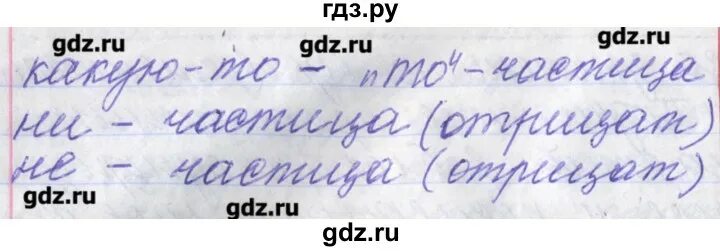 гдз.ру
gdz.ru gdz.ru gdz.ru
какую-то - „то" - частица
ни - частица (отрицат)
не - частица (отрицат)
gdz.ru gdz.ru
гдз.ру